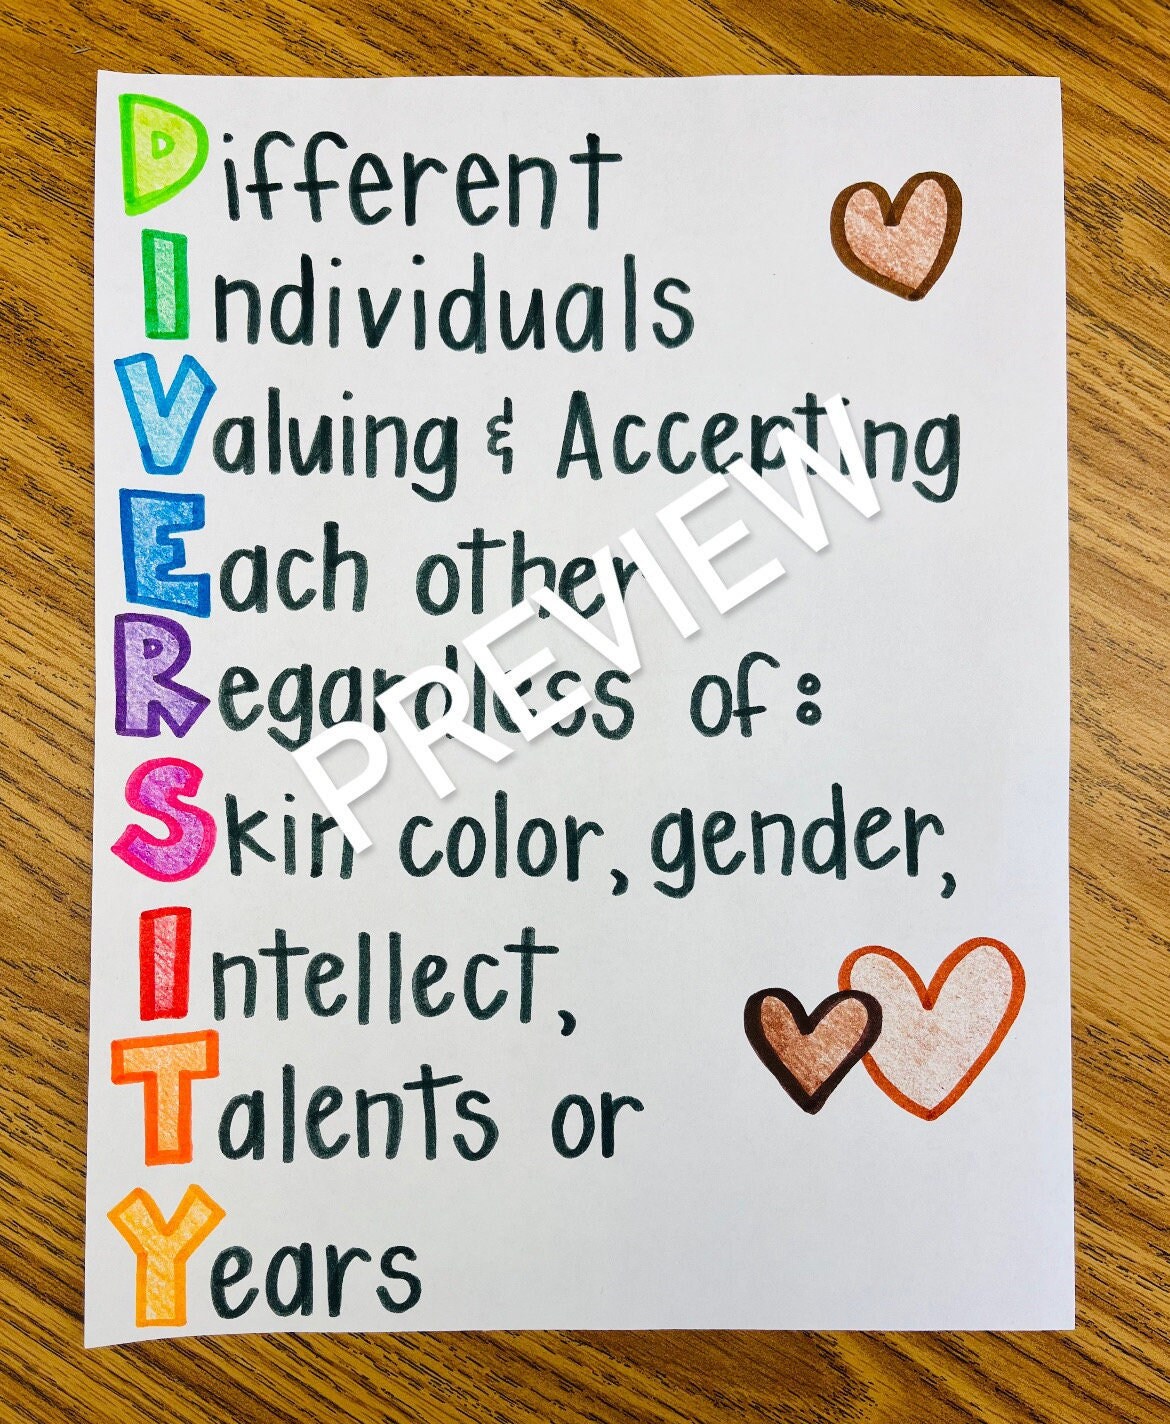 Different
Individuals
Valuing & Accepting
Each other
Regardless of:
Skin color, gender,
Intellect,
Talents or
Years
PREVIEW